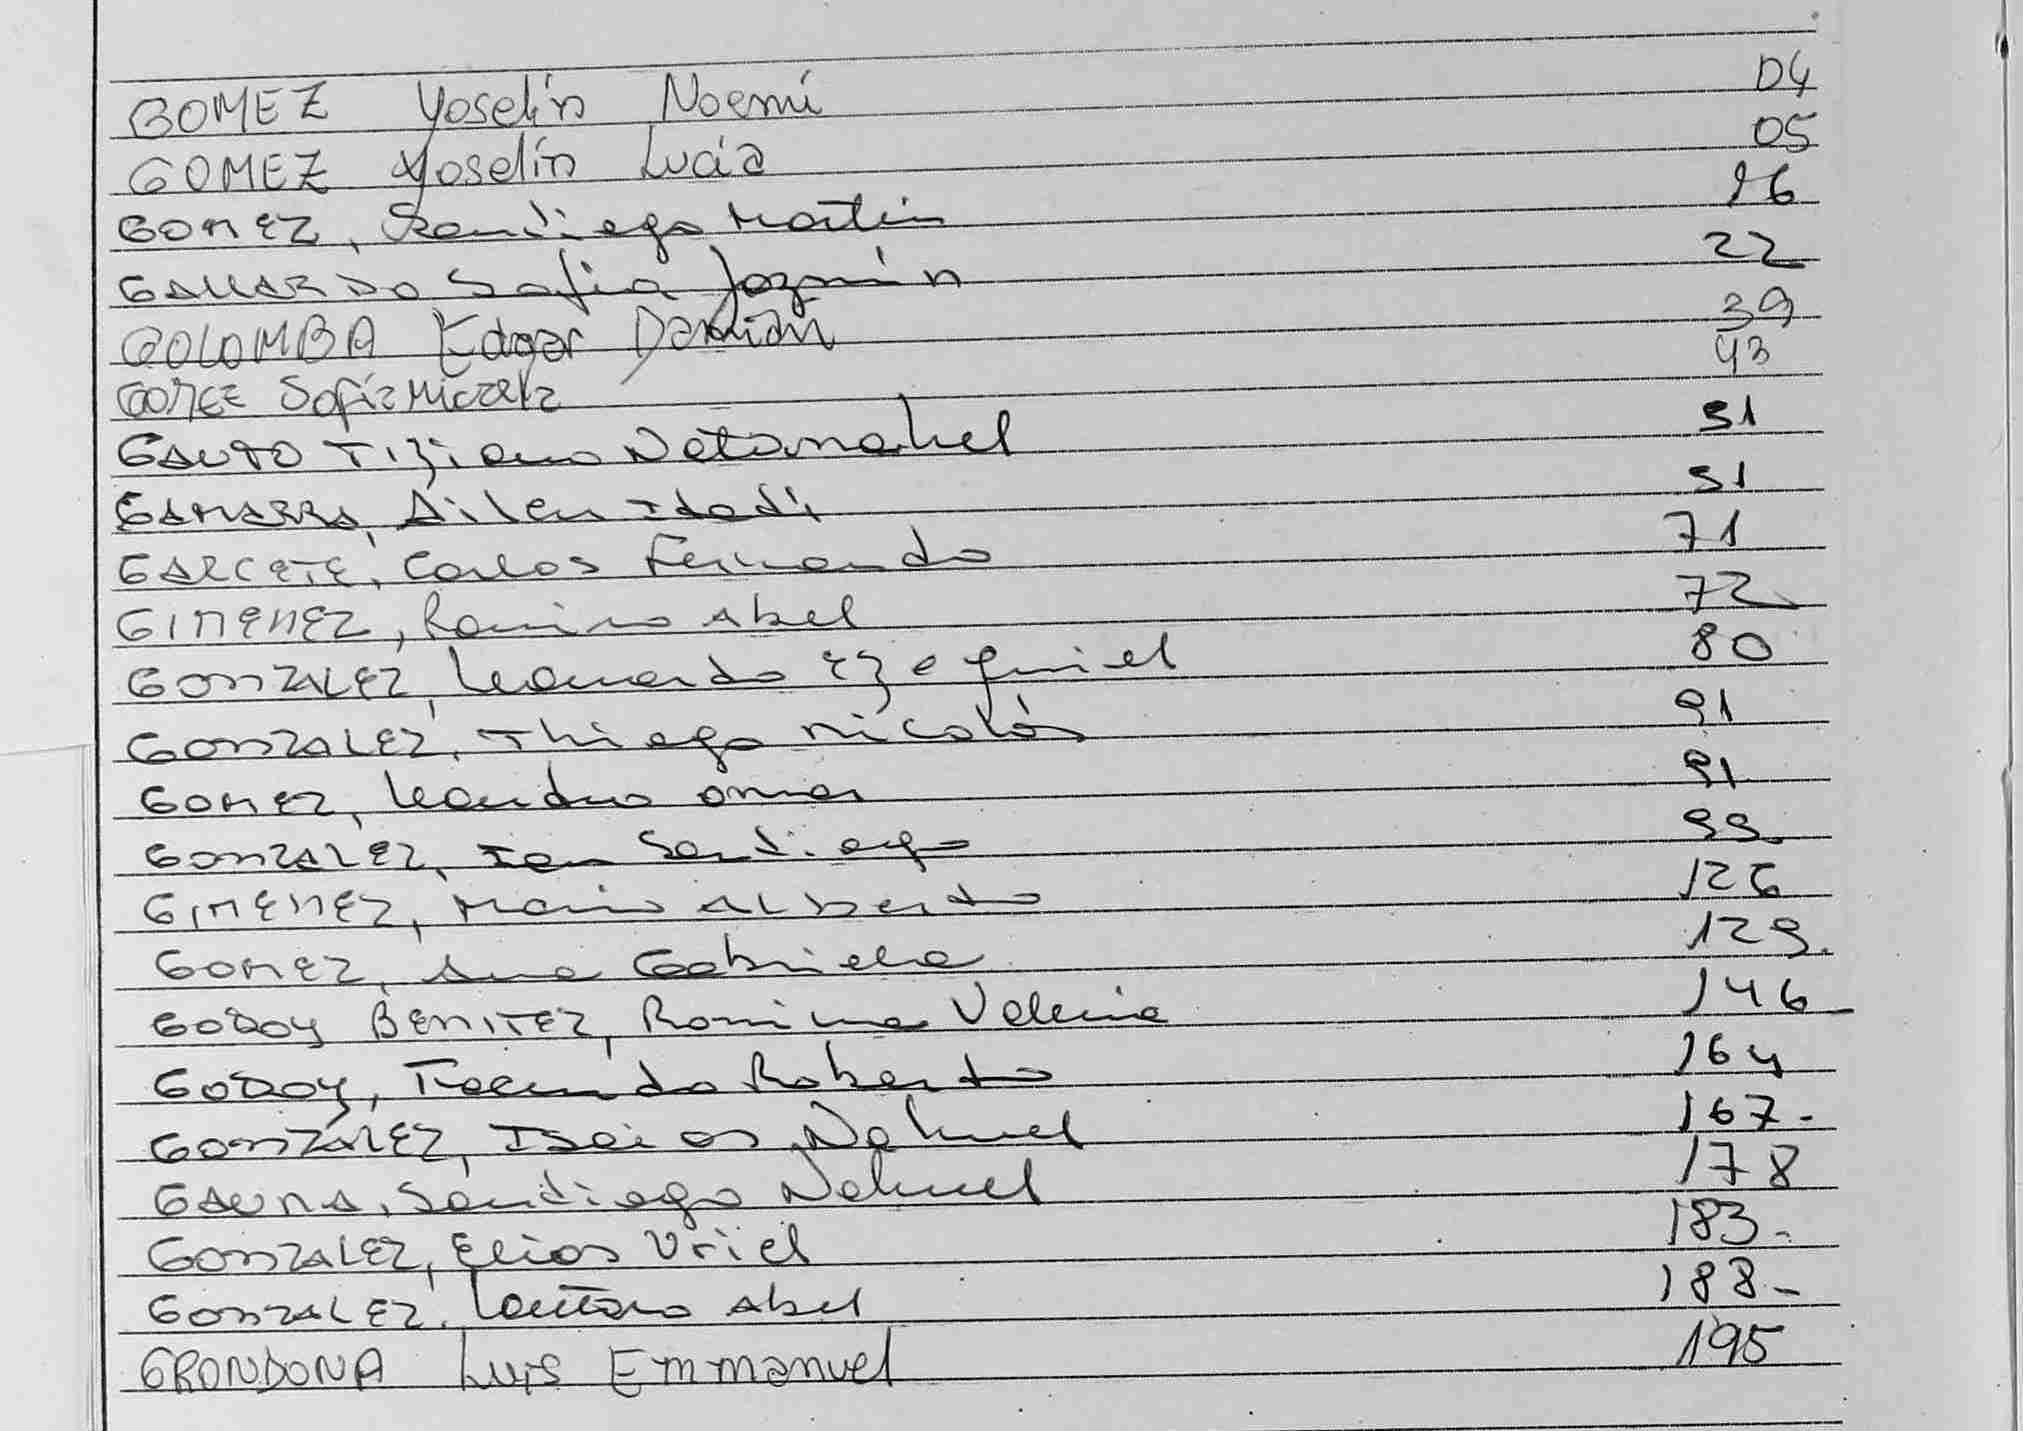 GOMEZ Yoselin Noemí 04
GOMEZ Yoselín Lucía 05
GOMEZ, Santiago Martin 16
GALLARDO Sofia Jazmín 22
GOLOMBA Edgar Damián 39
GOMEZ Sofía Micaela 43
GAUTO Tiziano Natanahel 51
GAMARRA, Ailen Idadi 51
GARCETE, Carlos Fernando 71
GIMENEZ, Ramiro Abel 72
GONZALEZ, Leonardo Ezequiel 80
GONZALEZ, Thiago Nicolás 91
GOMEZ, Leandro Omar 91
GONZALEZ, Ian Santiago 99
GIMENEZ, Mario Alberto 126
GOMEZ, Ana Gabriela 129.
GODOY BENITEZ, Romina Valeria 146
GODOY, Facundo Roberto 164
GONZÁLEZ, Isaias Nahuel 167-
GAUNA, Santiago Nahuel 178
GONZALEZ, Elias Uriel 183-
GONZALEZ, Lautaro Abel 188-
GRONDONA Luis Emmanuel 195